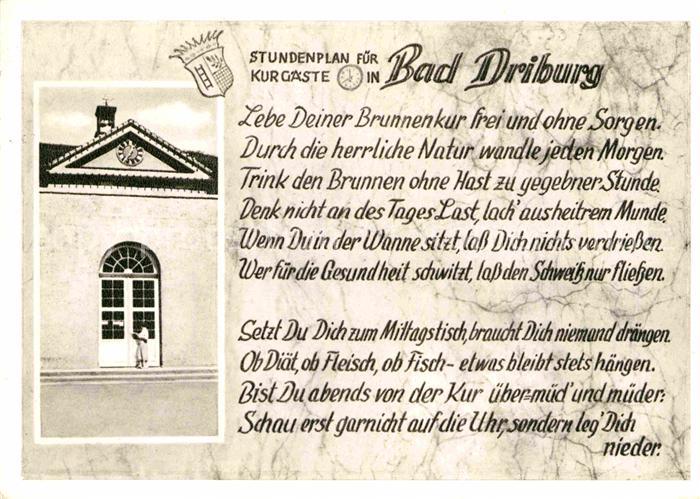 STUNDENPLAN FÜR
KURGÄSTE IN Bad Driburg
Lebe Deiner Brunnenkur frei und ohne Sorgen.
Durch die herrliche Natur wandle jeden Morgen.
Trink den Brunnen ohne Hast zu gegebner Stunde.
Denk nicht an des Tages Last, lach' aus heitrem Munde.
Wenn Du in der Wanne sitzt, laß Dich nichts verdrießen.
Wer für die Gesundheit schwitzt, laß den Schweiß nur fließen.
Setzt Du Dich zum Mittagstisch, braucht Dich niemand drängen.
Ob Diät, ob Fleisch, ob Fisch - etwas bleibt stets hängen.
Bist Du abends von der Kur über=müd' und müder:
Schau erst garnicht auf die Uhr, sondern leg' Dich
nieder.